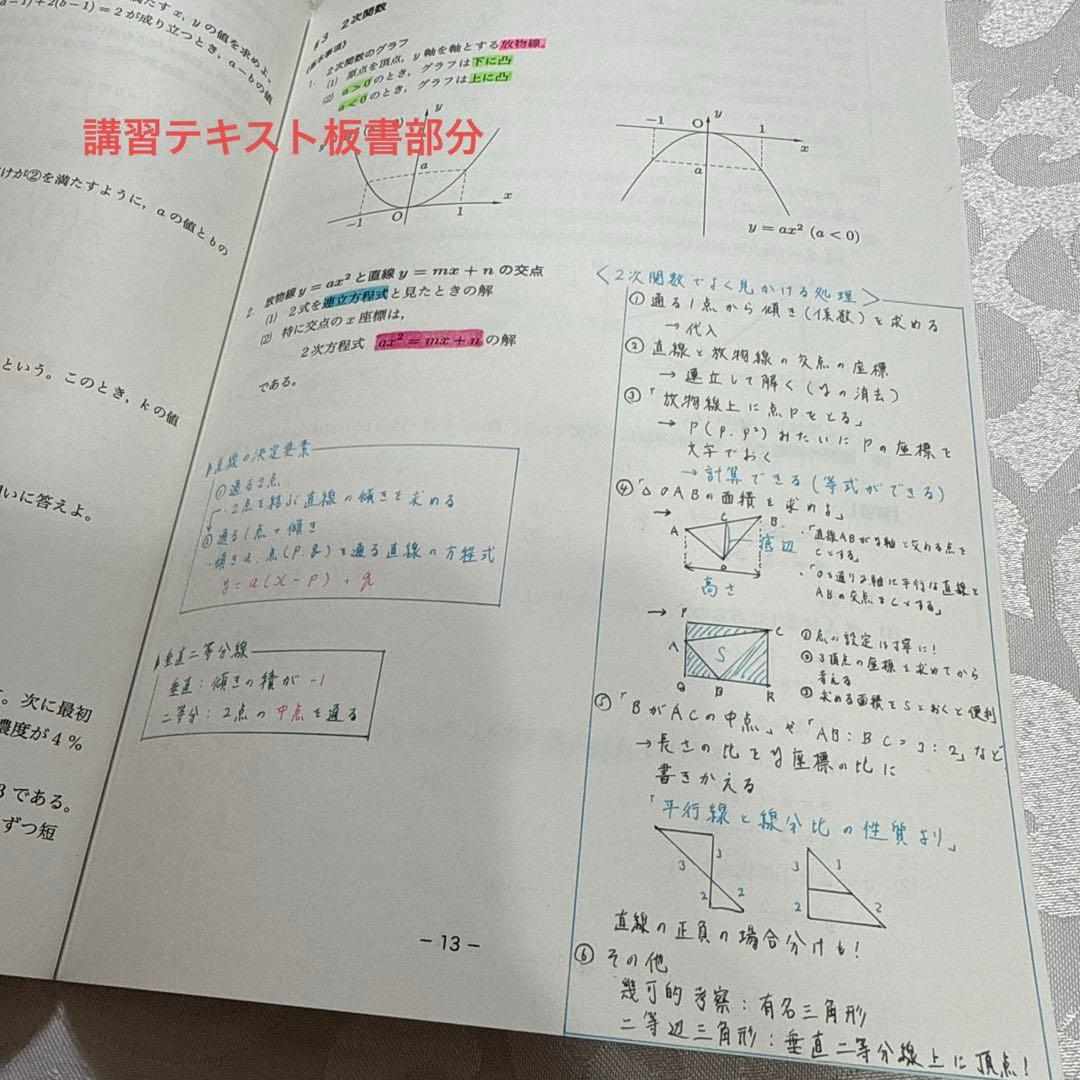 a-1)+2(b-1)=2 が成り立つとき, a-bの値
たす x, y の値を求めよ。
けが②を満たすように, a の値と b の
という。このとき, k の値
いに答えよ。
。次に最初
濃度が4%
3 である。
ずつ短
講習テキスト板書部分
§3 2次関数
《基本事項》
1. 2次関数のグラフ
(1) 原点を頂点, y軸を軸とする放物線。
(2) a>0 のとき, グラフは下に凸
a<0 のとき, グラフは上に凸
y
a
-1 O 1 x
y
-1 O 1 x
a
y=ax² (a<0)
2. 放物線 y=ax² と直線 y=mx+n の交点
(1) 2式を連立方程式と見たときの解
(2) 特に交点の x 座標は,
2次方程式 ax²=mx+n の解
である。
直線の決定要素
①通る2点
・2点を結ぶ直線の傾きを求める
②通る1点+傾き
・傾きa, 点(P, q)を通る直線の方程式
y=a(x-p)+q
垂直二等分線
垂直:傾きの積が -1
二等分:2点の中点を通る
-13-
<2次関数でよく見かける処理>
①通る1点から傾き(係数)を求める
→代入
②直線と放物線の交点の座標
→連立して解く(yの消去)
③「放物線上に点Pをとる」
→P(p, p²)みたいにPの座標を
文字でおく
→計算できる(等式ができる)
④「△OABの面積を求めよ」
→
A C B
O
底辺
高さ
・「直線ABがy軸と交わる点を
Cとする」
・「Oを通りy軸に平行な直線と
ABの交点をCとする」
→
P
C
A
S
Q B R
①点の設定は丁寧に!
②3頂点の座標を求めてから
考える
③求める面積をSとおくと便利
⑤「BがACの中点」や「AB:BC=3:2」など
→長さの比を座標の比に
書きかえる
「平行線と線分比の性質より」
3 3
2 2
3 3
2 2
直線の正負の場合分けも!
⑥その他
幾可的考察:有名三角形
二等辺三角形:垂直二等分線上に頂点!